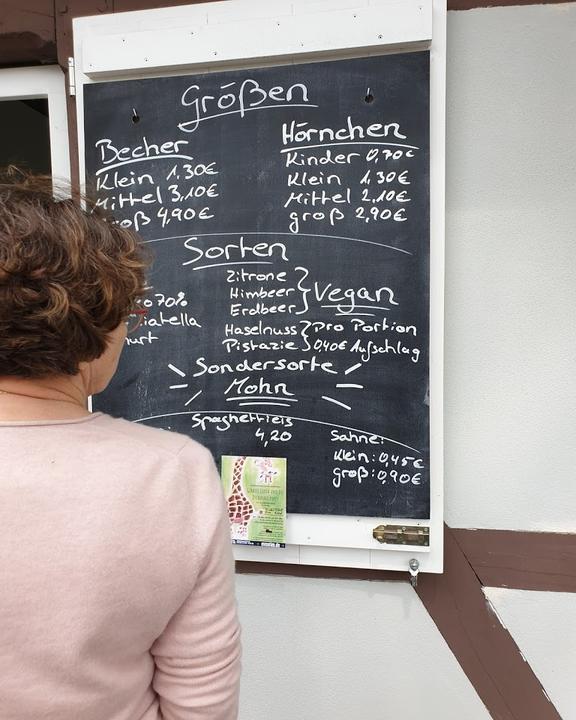 Größen
Becher
Klein 1,30€
Mittel 3,10€
groß 4,90€
Hörnchen
Kinder 0,70€
Klein 1,30€
Mittel 2,10€
groß 2,90€
Sorten
70%
Zitrone
Himbeer
Erdbeer
Vegan
Haselnuss
Pistazie
Pro Portion
0,40€ Aufschlag
Sondersorte
Mohn
Spaghettieis
4,20
Sahne:
Klein: 0,45€
groß: 0,90€